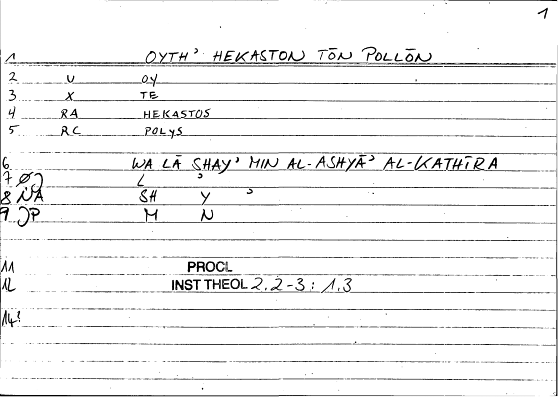 1
1 OYTH' HEKASTON TŌN POLLŌN
2 U OY
3 X TE
4 RA HEKASTOS
5 RC POLYS
6 WA LĀ SHAY' MIN AL-ASHYĀ' AL-KATHĪRA
7 L '
8 NA SH Y '
9 P M N
11 PROCL
12 INST THEOL 2.2-3: 1.3
14